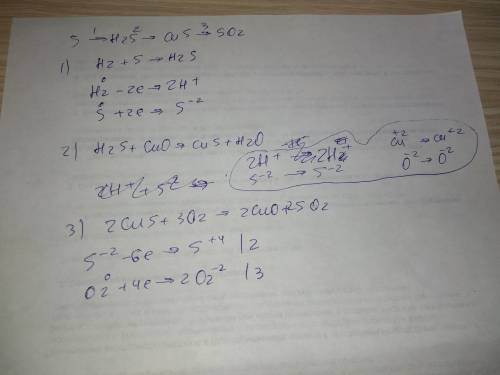 S →¹ H2S →² CuS →³ SO2
1) H2 + S → H2S
H2⁰ - 2e → 2H⁺
S⁰ + 2e → S⁻²
2) H2S + CuO → CuS + H2O
2H⁺ → 2H⁺
S⁻² → S⁻²
Cu⁺² → Cu⁺²
O⁻² → O⁻²
3) 2CuS + 3O2 → 2CuO + 2SO2
S⁻² - 6e → S⁺⁴ | 2
O2⁰ + 4e → 2O2⁻² | 3